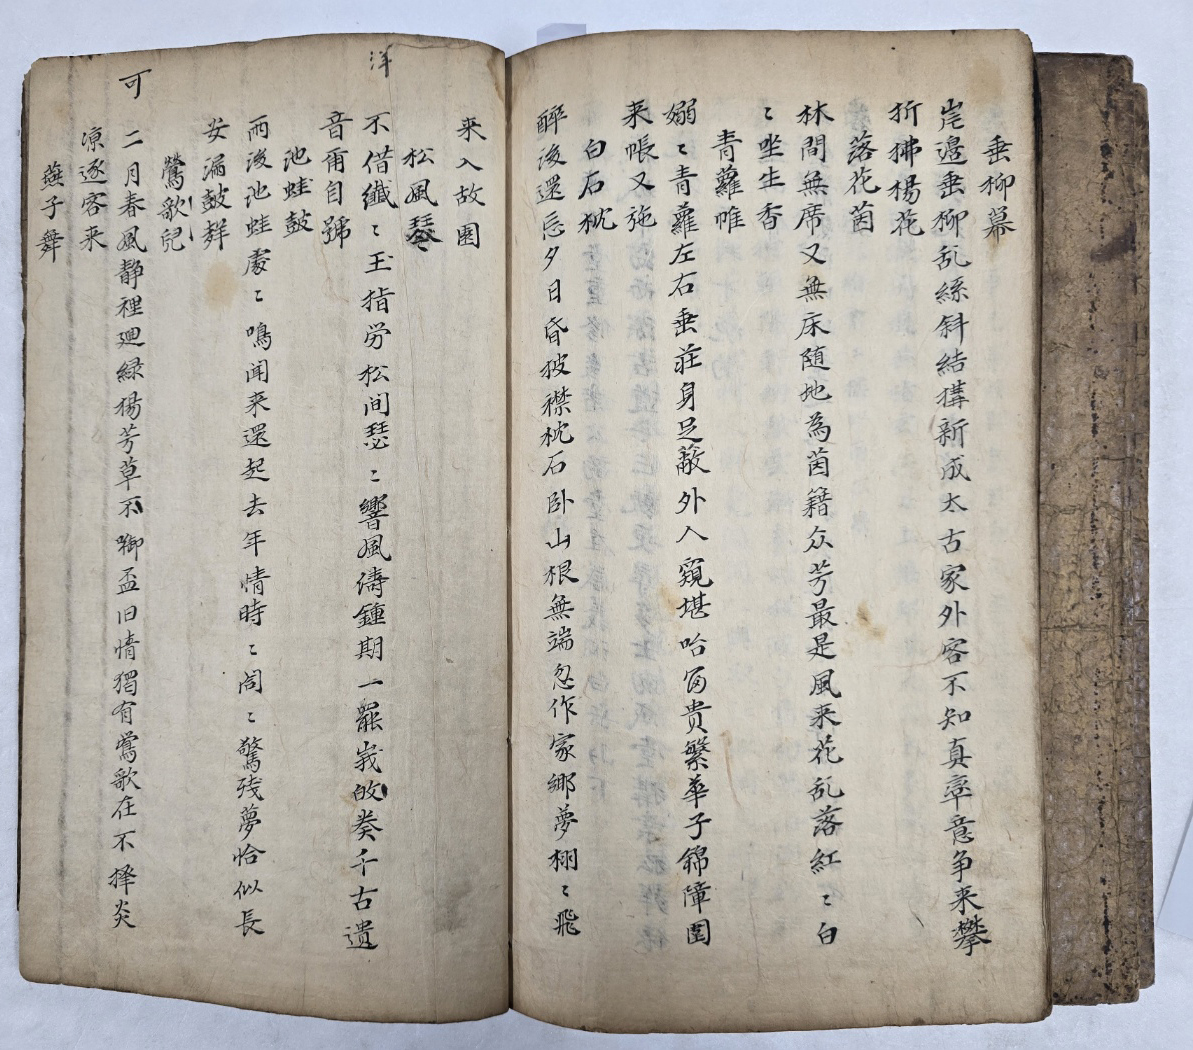 垂柳幕
岸邊垂柳乱絲斜結構新成太古家外客不知真率意争来攀
折拂楊花
落花茵
林間無席又無床随地為茵籍众芳最是風来花乱落紅〻白
〻坐生香
青蘿帷
嫋〻青蘿左右垂莊身足蔽外人窺堪咍富貴繁華子錦障圍
来帳又施
白石枕
醉後還忘夕日昏披襟枕石卧山根無端忽作家鄉夢栩〻飛
来入故園
松風瑟
不借纖〻玉指労松间瑟〻響風濤鍾期一罷峩 奏千古遺
音爾自號
洋
池蛙鼓
雨後池蛙處〻鳴闻来還起去年情時〻閤〻驚残夢恰似長
安漏鼓聲
鶯歌兒
二月春風静裡廻緑楊芳草不啣盃旧情獨有鶯歌在不擇炎
凉逐客来
可
燕子舞